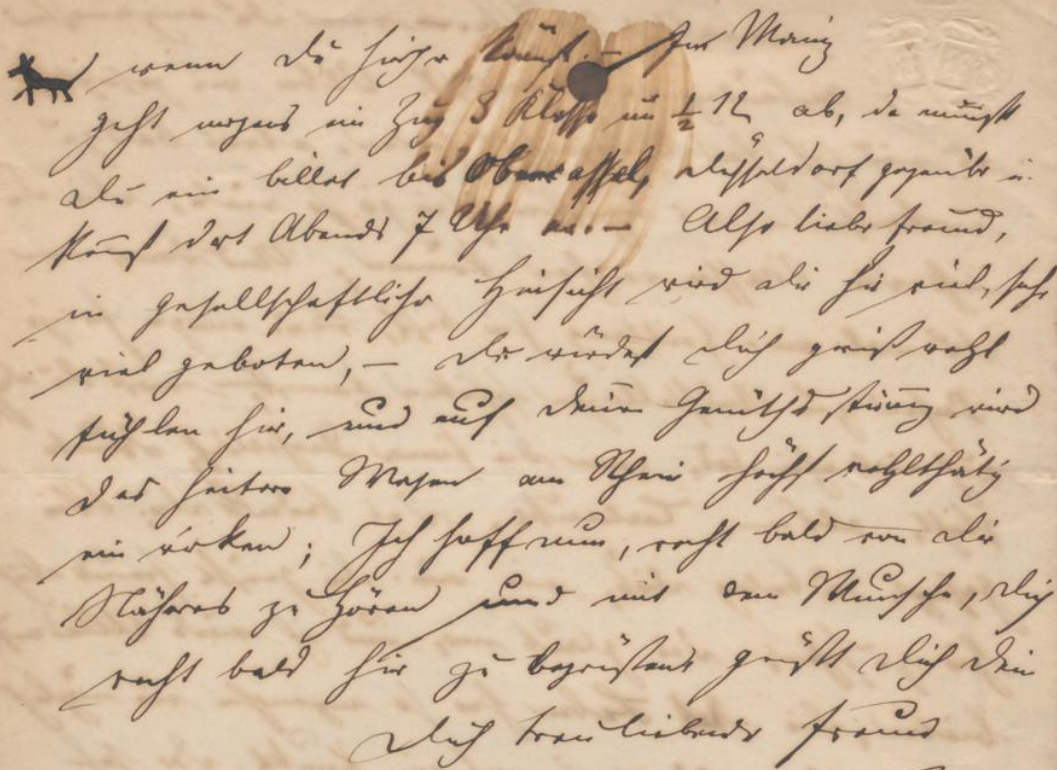 wenn Du hieher kömst. – In Mainz
geht morgens ein Zug 3 Klasse um ½ 12 ab, da mußt
Du ein billet bis Obercassel, Düsseldorf gegenüber u.
kömst dort Abends 7 Uhr an. – Also lieber Freund,
in gesellschaftlicher Hinsicht wird dir hier viel, sehr
viel geboten, – Du würdest Dich gewiß wohl
fühlen hier, und auf Deine Gemüthsstimmung wird
das heitere Wesen am Rhein höchst wohlthätig
einwirken; Ich hoffe nun, recht bald von Dir
Näheres zu hören und mit dem Wunsche, Dich
recht bald hier zu begrüßen grüßt Dich Dein
Dich treu liebender Freund